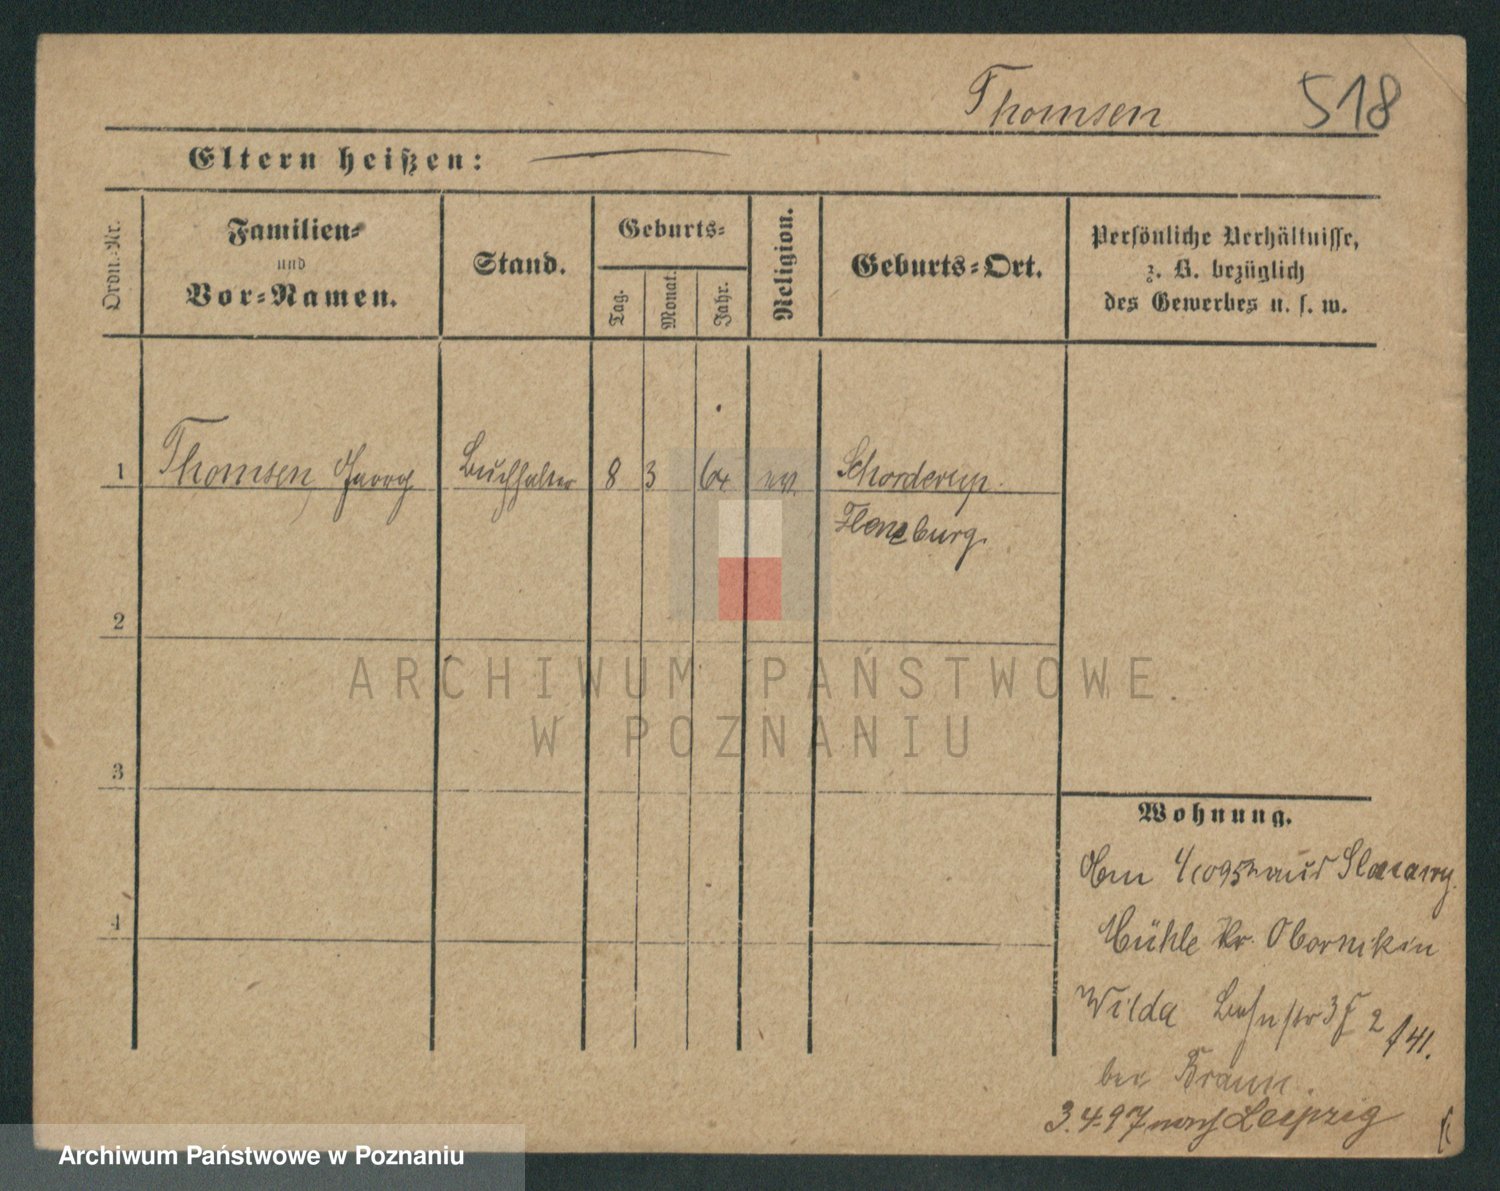 Thomsen 518
Eltern heißen:
Ordn.-Nr.
Familien-
und
Vor-Namen.
Stand.
Geburts-
Tag.
Monat.
Jahr.
Religion.
Geburts-Ort.
Persönliche Verhältnisse,
z. B. bezüglich
des Gewerbes u. s. w.
1 Thomsen, Georg Buchhalter 8 3 64 ev. Schorderup.
Flensburg.
2
3
4
ARCHIWUM PAŃSTWOWE
W POZNANIU
Wohnung.
95 aus
Mühle Kr. Obornik in
Wilda Bahnstr 2 141.
bei Braun.
3.4.97 nach Leipzig
Archiwum Państwowe w Poznaniu